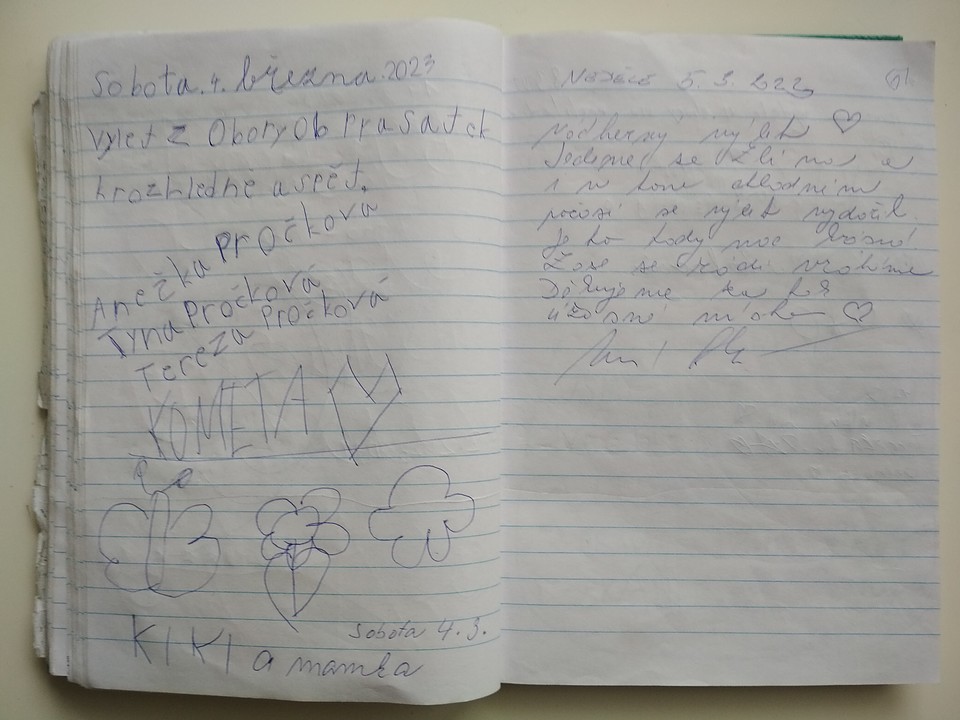 Sobota.4. března.2023
Výlet z Obory Ob Prasátek
k rozhledně a spět.
Anežka Pročková
Tyna Pročková
Tereza Pročková
KOMETA
KIKI a mamka
Sobota 4.3.
5.3.2023
Nádherný výlet ♡
se Zlína a
i v tom chladném
počasí se výlet vydařil.
Je to tady moc krásné
se rádi vrátíme
Děkujeme za
úžasné ♡